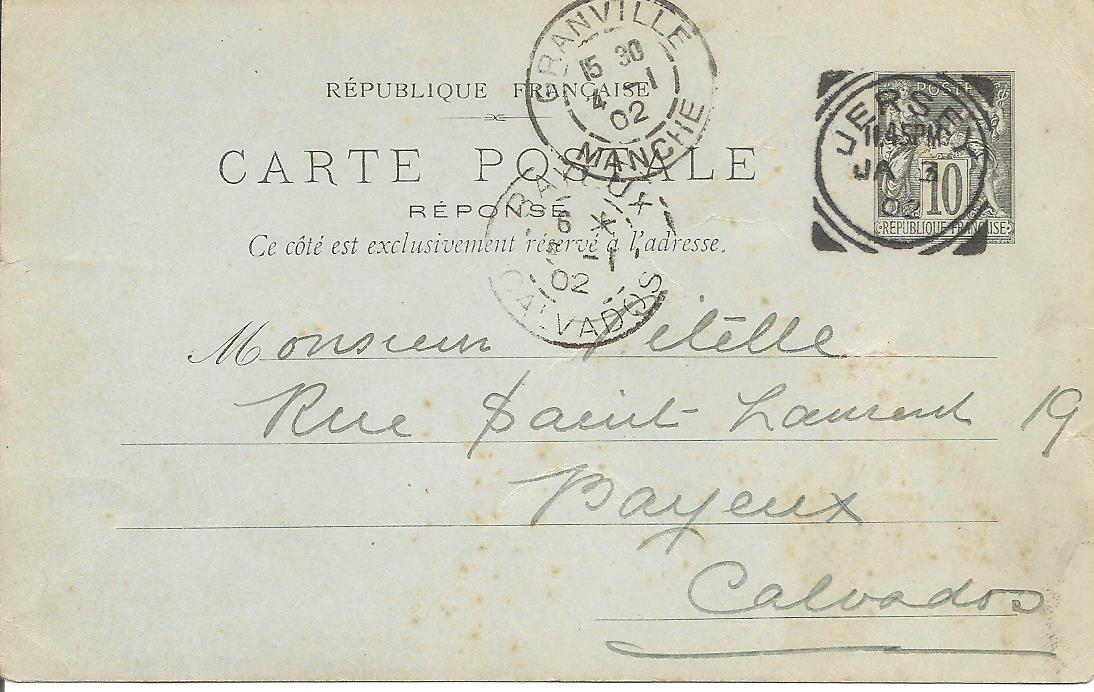 GRANVILLE
15 30
4 -1
02
MANCHE
RÉPUBLIQUE FRANÇAISE
CARTE POSTALE
RÉPONSE
Ce côté est exclusivement réservé à l'adresse.
POSTE
10
RÉPUBLIQUE FRANÇAISE
JERSEY
11.45PM
JA 3
02
BAYEUX
6 *
-1
02
CALVADOS
Monsieur Vitelle
Rue Saint Laurent 19
Bayeux
Calvados